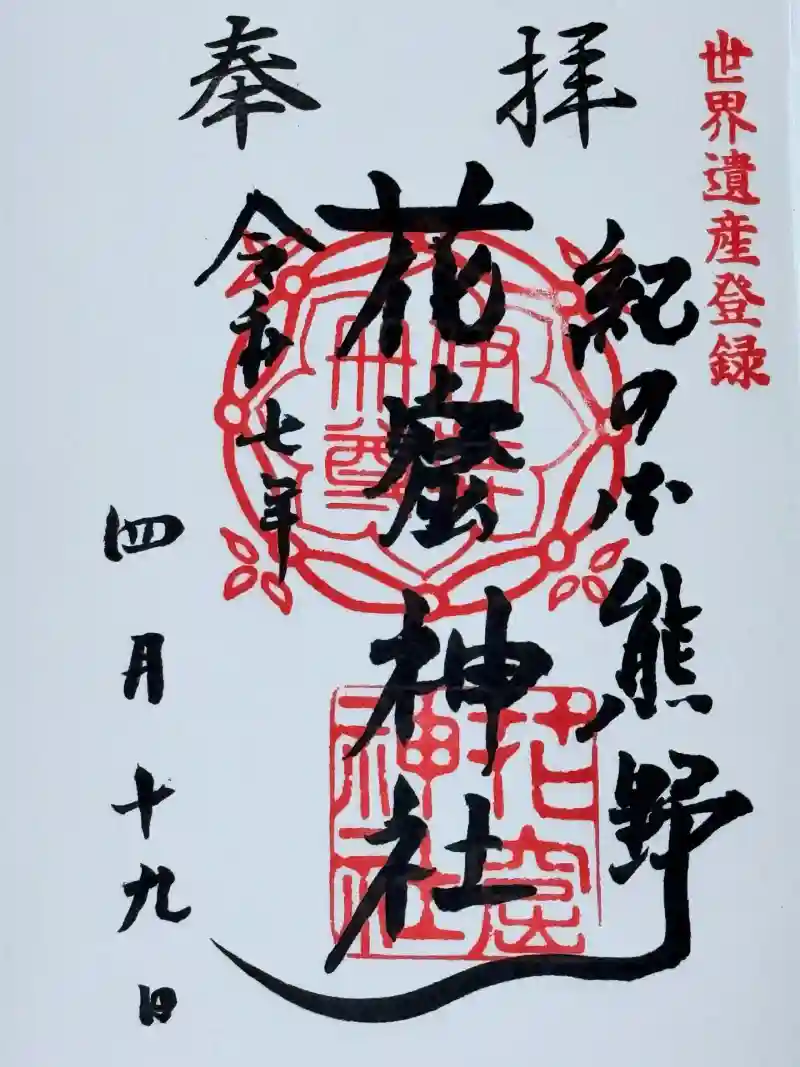 奉拝
世界遺産登録
紀の本熊野
花窟神社
令和七年
四月十九日
伊弉冊尊
花窟神社